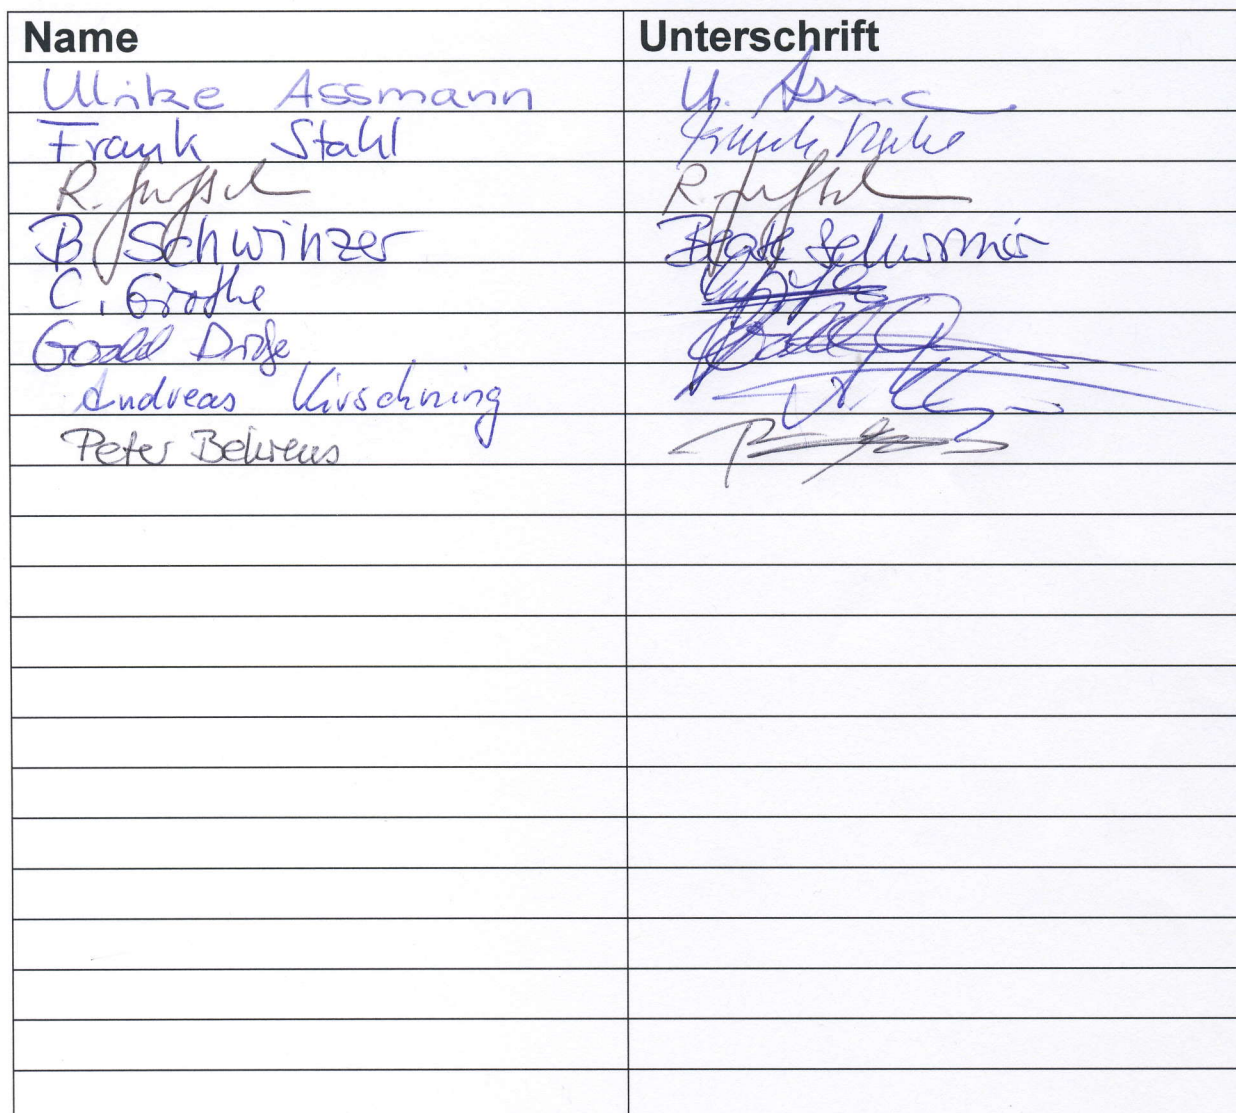 Name Unterschrift
Ulrike Assmann U. Assmann
Frank Stahl Frank Stahl
R. R.
B Schwinzer Beate Schwinzer
C. Grothe
Gerald Dräger
Andreas Kirschning
Peter Behrens